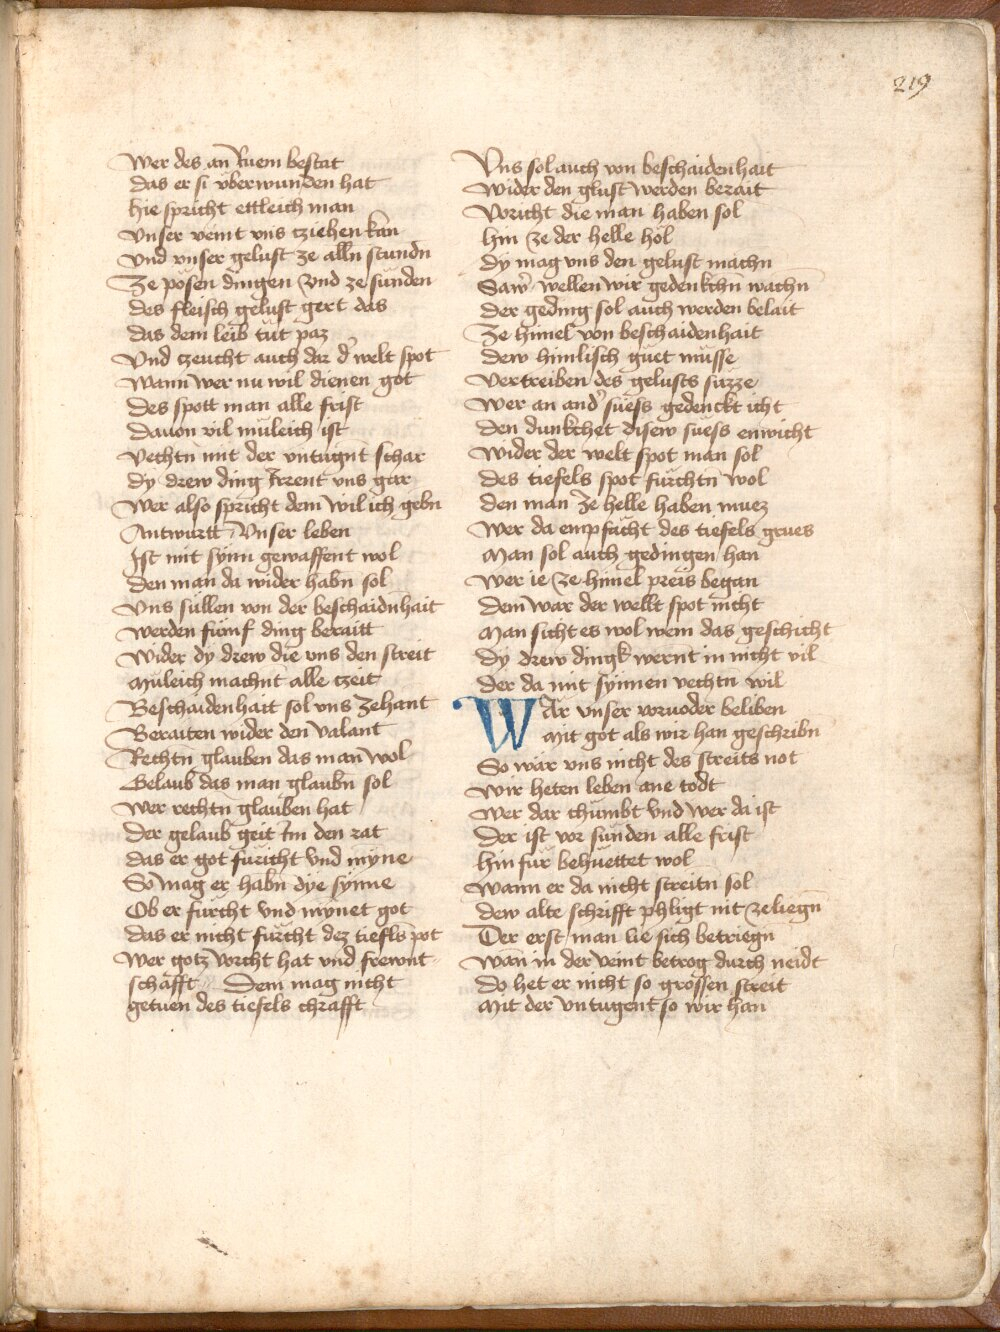 219
Wer des an Ruem bestat
das er si vberwunden hat
hie spricht ettleich man
Vnser veint vns cziehen kan
Vnd vnser gelust ze alln stundn
Ze pösen dingen vnd ze sünden
des fleisch gelust gert das
das dem leib tüt paz
Vnd czeucht auch dar d' welt spot
Wann wer nu wil dienen got
des spott man alle frist
dauon vil müleich ist
Vechtn mit der vntugnt schar
dy drew ding Irrent vns gar
Wer also spricht dem wil ich gebn
Antwurtt Vnser leben
Ist mit synn gewaffent wol
den man da wider habn sol
Vns süllen von der beschaidnhait
werden fünf ding beraitt
Wider dy drew die vns den streit
Müleich machnt alle czeit
Beschaidenhait sol vns Zehant
Beraiten wider den valant
Rechtn glauben das man wol
Gelaub das man glaubn sol
Wer rechtn glauben hat
der gelaub geit Im den rat
das er got füricht vnd myne
So mag er habn dye synne
Ob er fürcht vnd mynet got
das er nicht fürcht dez tiefls pot
Wer gotz vorcht hat vnd frewnt
schafft Dem mag nicht
getuen des tiefels chrafft
Vns sol auch von beschaidenhait
Wider den glust werden berait
Voricht die man haben sol
hin ze der helle hol
dy mag vns den gelust machn
Saw' wellen wir gedenkchn wachn
der geding sol auch werden belait
Ze himel von beschaidenhait
dew himlisch guet müsse
Vertreiben des gelusts süzze
Wer an and' süess gedenckt icht
den dunkchet disew süess enwicht
Wider der welt spot man sol
des tiefels spot fürchtn wol
den man Ze helle haben muez
Wer da empfächt des tiefels grues
Man sol auch gedingen han
Wer ie ze himel preis began
dem war der wellt spot nicht
Man sicht es wol wem das geschicht
Dy drew dingk wernt in nicht vil
der da mit synnen vechtn wil
Wär vnser voruoder beliben
Mit got als wir han geschribn
So wär vns nicht des streits not
wir heten leben ane todt
Wer dar chümbt vnd wer da ist
der ist vor sünden alle frist
hin für behuettet wol
Wann er da nicht streitn sol
dew alte schrifft phligt nit ze liegn
Der erst man lie sich betriegn
Wan in der veint betrog durch neidt
do het er nicht so grossen streit
Mit der vntugent so wir han